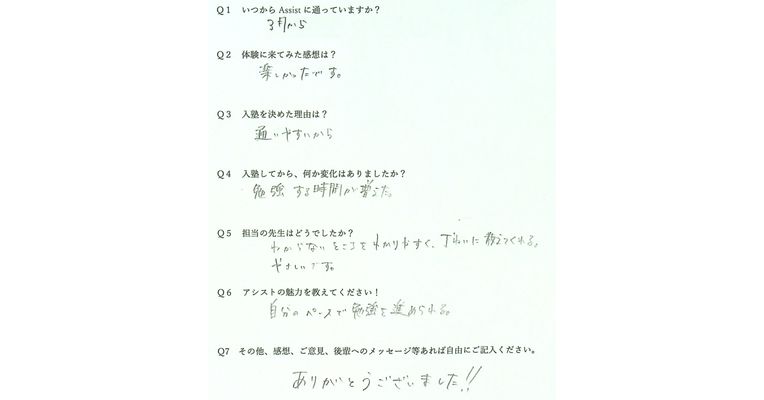 Q1 いつから Assist に通っていますか？
3月から
Q2 体験に来てみた感想は？
楽しかったです。
Q3 入塾を決めた理由は？
通いやすいから
Q4 入塾してから、何か変化はありましたか？
勉強する時間が増えた。
Q5 担当の先生はどうでしたか？
わからないところをわかりやすく、丁ねいに教えてくれる。
やさしいです。
Q6 アシストの魅力を教えてください！
自分のペースで勉強を進められる。
Q7 その他、感想、ご意見、後輩へのメッセージ等あれば自由にご記入ください。
ありがとうございました!!